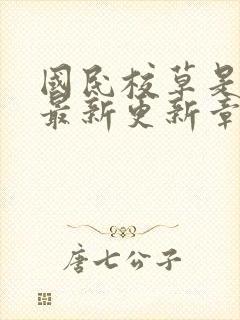 國民校草是
最新更新章
唐七公子